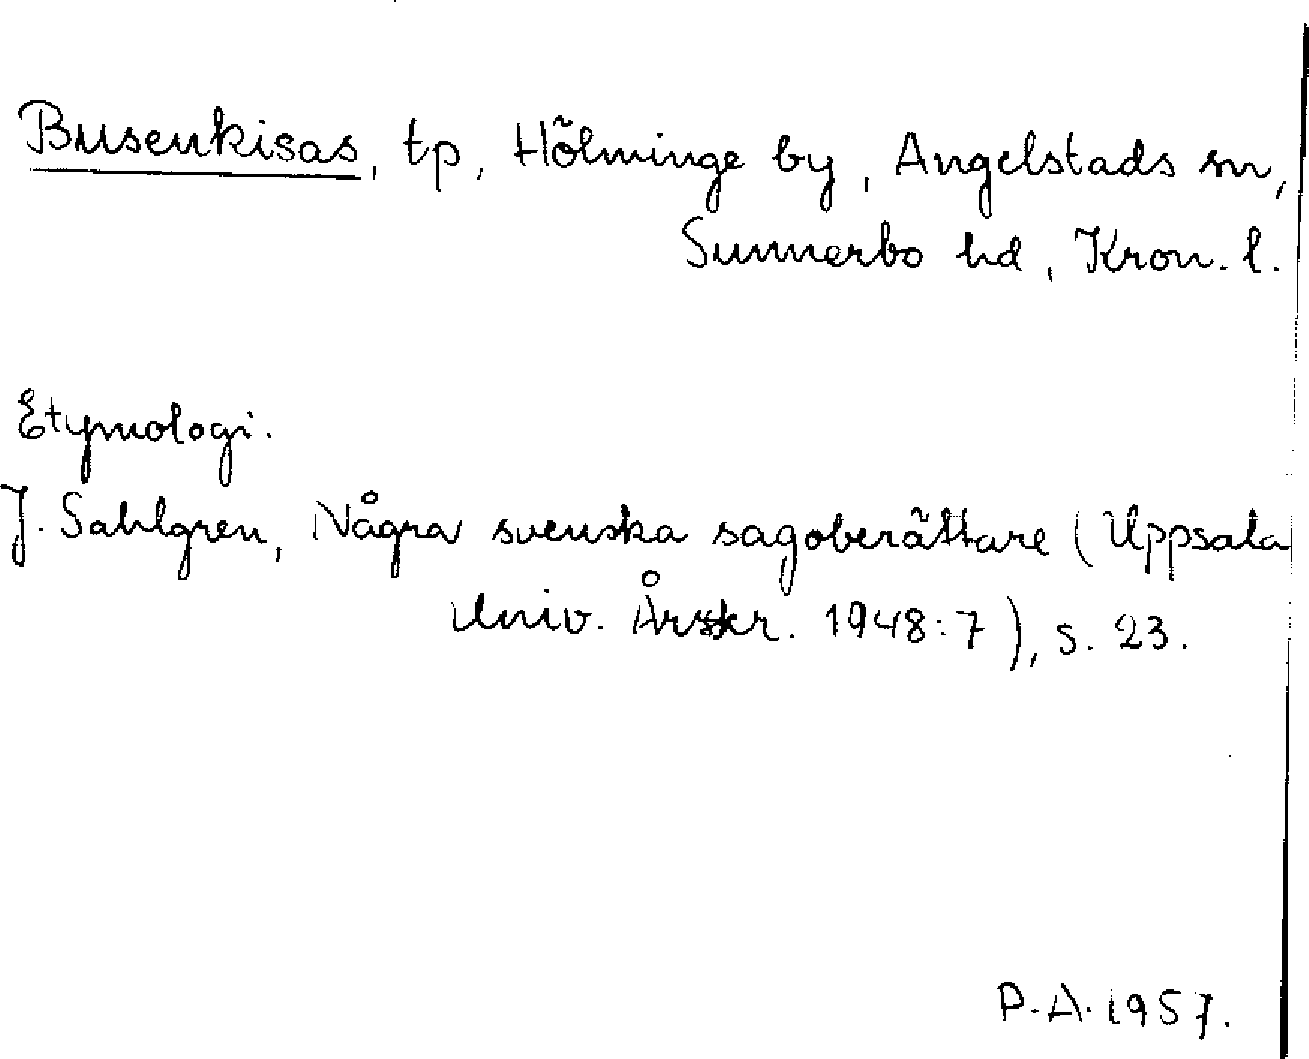 Busenkisas, tp, Hölminge by, Angelstads sn,
Sunnerbo hd, Kron. l.
Etymologi.
J. Sahlgren, Några svenska sagoberättare (Uppsala
Univ. Årskr. 1948:7), s. 23.
P.A. 1957.